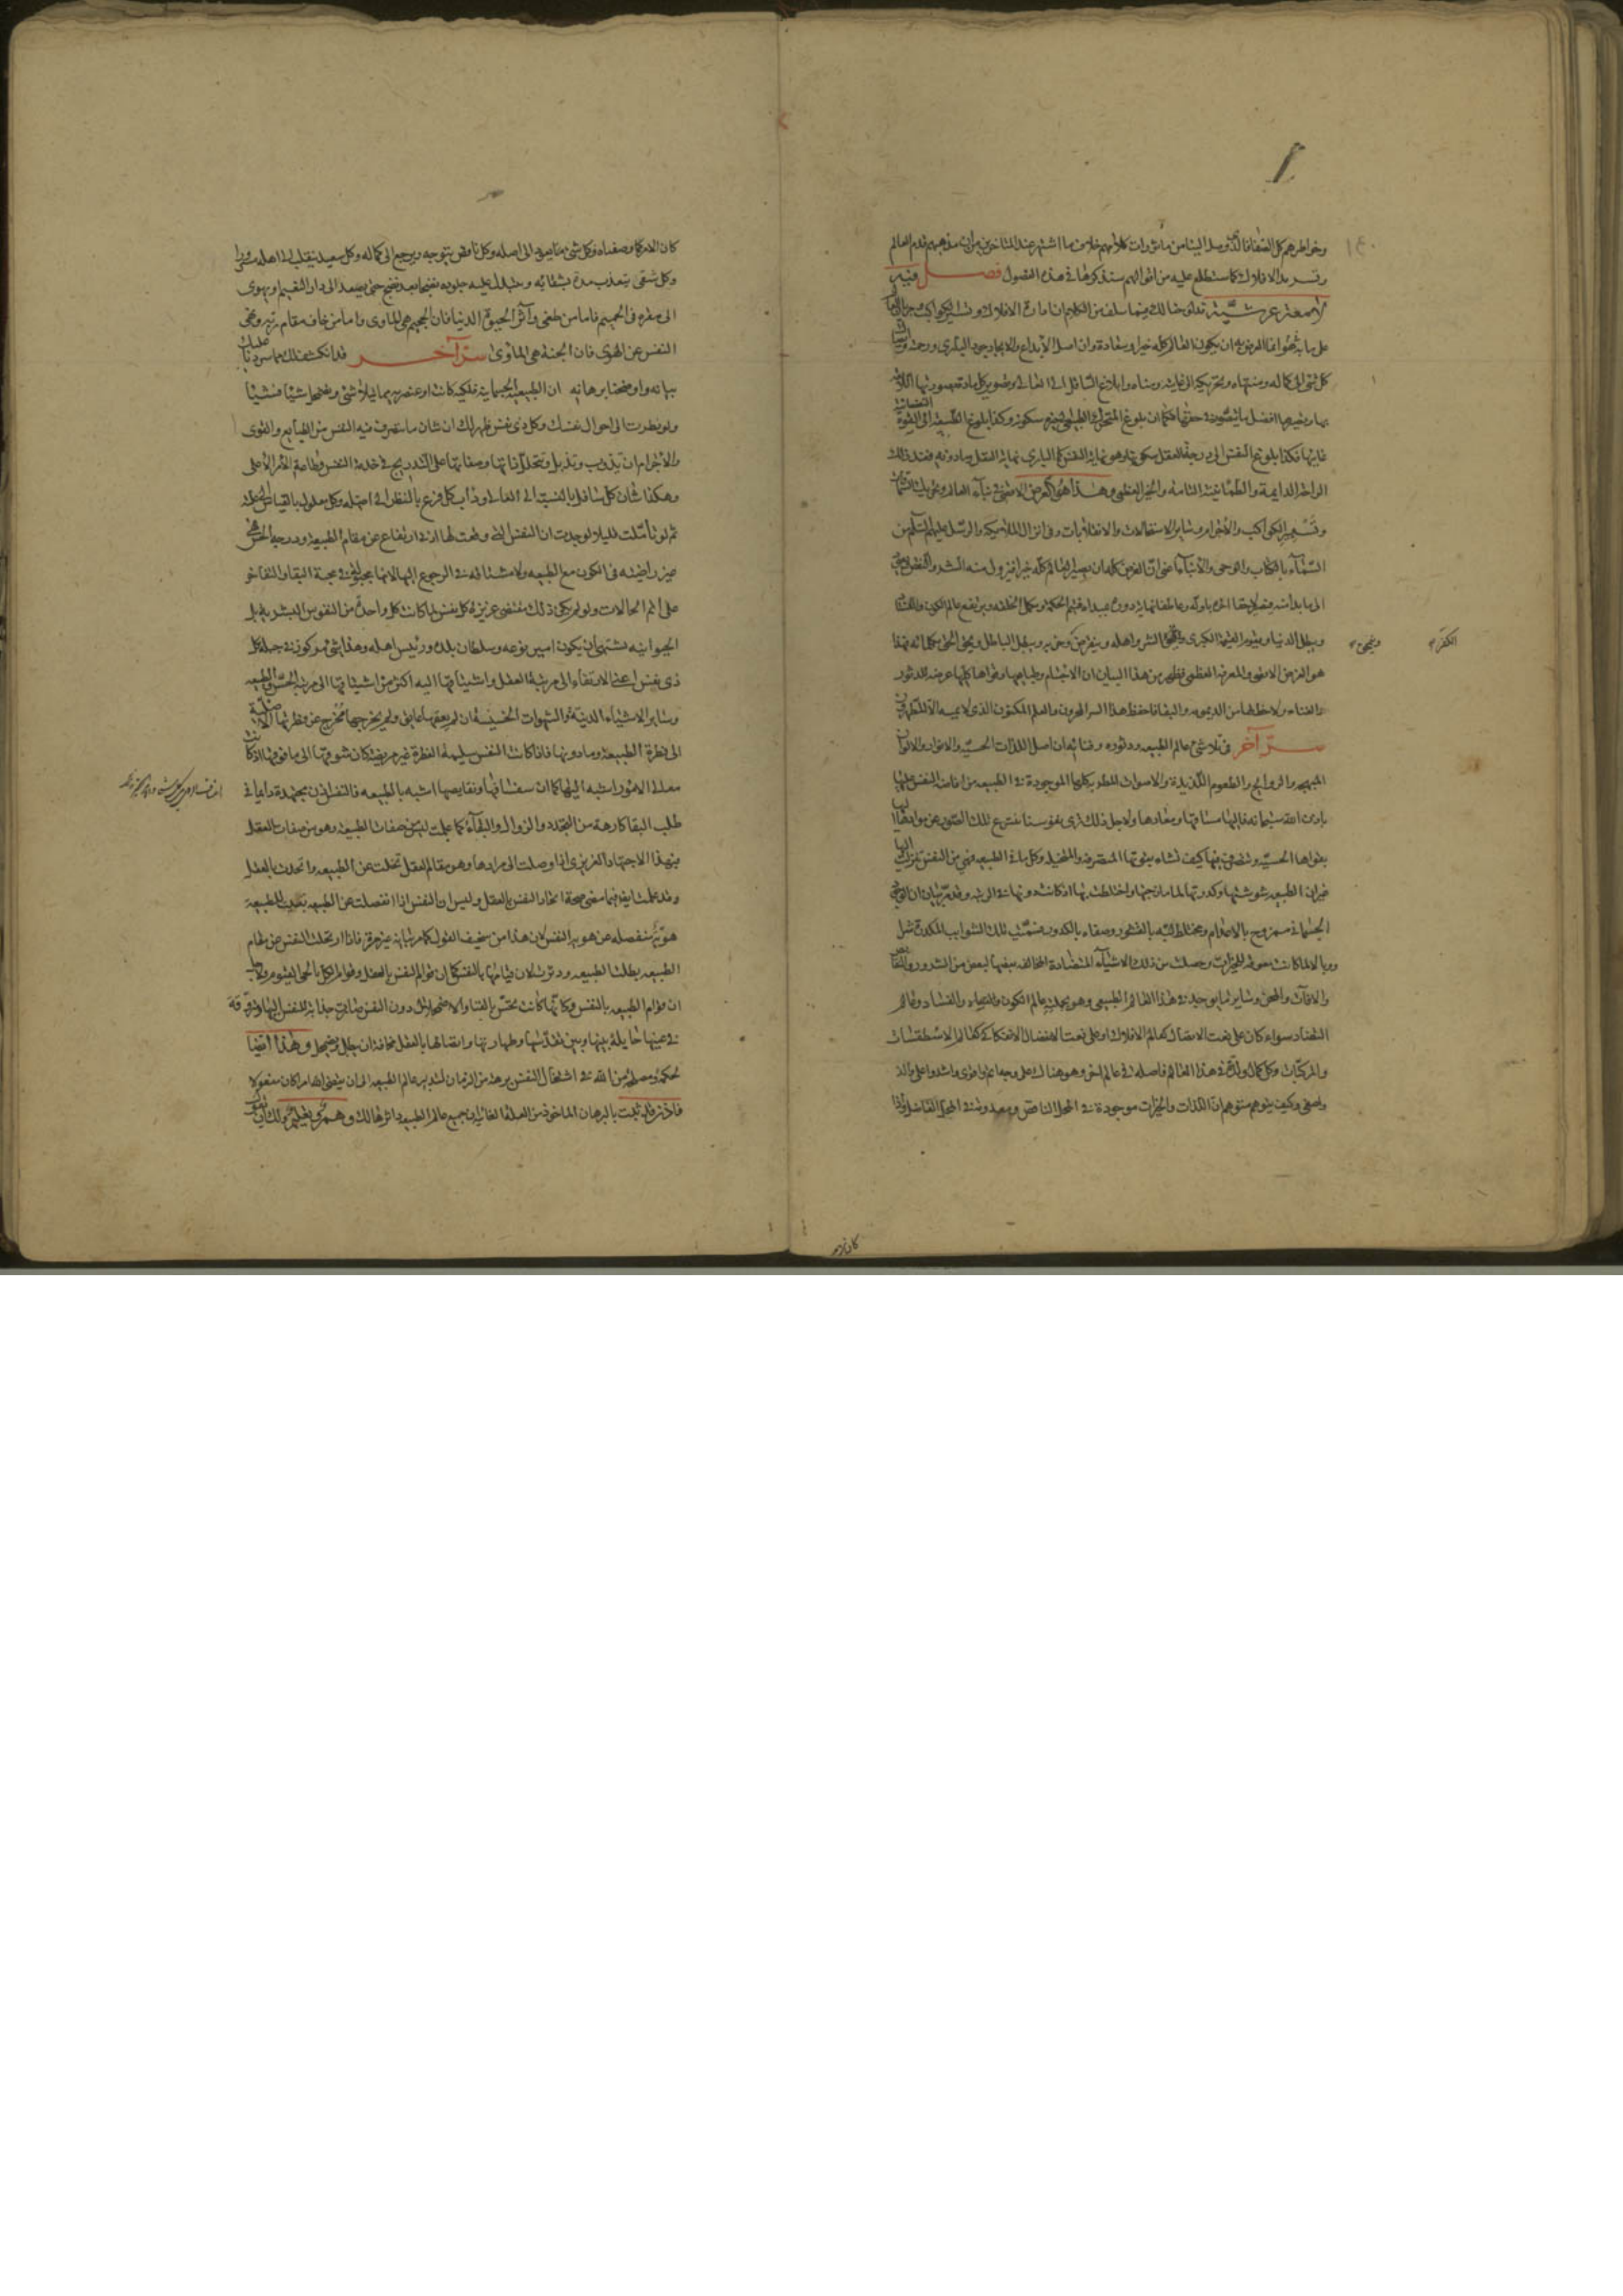 وخواطرهم كل الصفا فالذى وصل الينا من مأثورات كلامهم خلاف ما اشتهر عند المتاخرين من ان مذهبهم قدم العالم
وتسرمد الافلاك كما ستطلع عليه من اقوالهم سنذكرها فى هذه الفصول فصل فيه
لامعة عرشيّة قد لاح لك فيما سلف من الكلام ان ادارة الافلاك وتسيير الكواكب
على ما به هو انما الغرض به ان يكون العالم كله خيرا وسعادة وان اصل الابداع والايجاد جود البارى ورحمته
كل شئ الى كماله ومنتهاه وتحريكه الى غايته ومناه وابلاغ السافل الى العالى وتصوير كل مادة بصورتها اللائقة
بها وتصييرها افضل ما يتصور فى حقها فكما ان بلوغ المتحرك الطبيعى لحيزه سكونه وكذا بلوغ الطبيعة الى القوة النفسانية
غايتها فكذا بلوغ النفس الى درجة العقل سكونها وهو نهاية النفس كما البارى نهاية العقل وما دونه فعند ذلك
الراحة الدايمة والطمأنينة التامة والخير العظمى وهذا هو الغرض الاقصى فى بناء العالم وتحريك السموات
وتسيير الكواكب والاجرام وساير الاستحالات والانقلابات وفى انزال الملائكة والرسل عليهم السلام من
السماء بالكتاب والوحى والانباء اعنى ان الغرض كله ان يصير العالم كله خيرا فيزول منه الشر والنقص ويعود
الى ما بدا منه فيصير لاحقا اخره باوله وعاطفا نهايته دوره بمبداه فتتم الحكمة وتكمل الخلقة ويرتفع عالم الكون والفساد
وتبطل الدنيا وتقوم القيمة الكبرى ويمحق الشر واهله وينقرض الكفر وحزبه ويبطل الباطل ويحق الحق بكلماته فهذا
هو الغرض الاقصى والمعرفة العظمى فظهر من هذا البيان ان الاجسام وطبايعها وقواها كلها عرضة للدثور
والفناء ولاحظ لها من الديمومة والبقا فاحفظ هذا السر المخزون والعلم المكنون الذى لا يمسه الا المطهرون
سرّ آخر فى تلاشى عالم الطبيعه ودثوره وفنائه ان اصل اللذات الحسيّة والانوار والالوان
المبهجه والروايح والطعوم اللذيذة والاصوات المطربة كلها الموجودة فى الطبيعه من افاضة النفس عليها
باذن الله سبحانه فاليها مساقها ومعادها ولاجل ذلك ترى نفوسنا تنتزع تلك الصور عن موادها
بقواها الحسيّة وتتصرف فيها كيف تشاء بقوتها المتصرفة والمتخيله وكل ما فى الطبيعه فهى من النفس
غير ان الطبيعه شوشتها وكدرتها لما مازجتها واختلطت بها اذ كانت دونها فى الرتبه وقد مرّ بيان ان
الجسمانى ممزوج بالاعدام ومختلط لبّه بالقشور وصفاءه بالكدور
وبالا لما كانت معدن الخيرات وحصلت من ذلك الاشياء المتضادة المخالفه بعضها لبعض من الشرور والنقايص
والافات والمحن وساير ما يوجد فى هذا العالم الطبيعى وهو بجملته عالم الكون والفساد وعالم
التضاد سواء كان على نعت الاتصال كعالم الافلاك او على نعت الانفصال الانفكاكى كعالم الاسطقسات
والمركبات وكل كمال ولذة فى هذا العالم فاصله فى عالم اخر وهو هناك على وجه اتم واقوى واشد واعلى والذ
واصفى وكيف يتوهم متوهم ان اللذات والخيرات موجودة فى المحل الناقص ومعدومة فى المحل الفاضل واذا
ويمحق
الكفر
كان الامر كما وصفناه فكل شئ منا يعود الى اصله وكل ناقص يتوجه ويرجع الى كماله وكل سعيد ينقلب الى اهله مسرورا
وكل شقى يتعذب مدة بشقائه وتتبدل عليه جلوده نضجا بعد نضج حتى يصعد الى دار النعيم او يهوى
الى مقره فى الجحيم فاما من طغى وآثر الحيوة الدنيا فان الجحيم هى الماوى واما من خاف مقام ربه ونهى
النفس عن الهوى فان الجنة هى الماوى سرّ آخر قد انكشف لك مما سردنا عليك
بيانه واوضحنا برهانه ان الطبيعة الجسمانية فلكية كانت او عنصريه مما يتلاشى ويضمحل شيئا فشيئا
ولو نظرت الى احوال نفسك وكل ذى نفس ظهر لك ان شان ما يتصرف فيه النفس من الطبايع والقوى
والاجرام ان تذوب وتذبل وتتحلل ذاتها وصفاتها على التدريج فى خدمة النفس وطاعة الامر الاعلى
وهكذا شان كل سافل بالنسبة الى العالى وداب كل فرع بالنظر الى اصله وكل معلول بالقياس الى علته
ثم لو تاملت قليلا لوجدت ان النفس التى وقعت لها ادنى ارتفاع عن مقام الطبيعة ودرجة الحس فهى
غير راضية فى الكون مع الطبيعه ولا مشتاقه فى الرجوع اليها لانها مجبولة فى محبة البقا والتفاخر
على اتم الحالات ولو لم يكن ذلك مقتضى غريزة كل نفس لما كانت كل واحدة من النفوس البشرية بل
الحيوانية تشتهى ان يكون امير نوعه وسلطان بلده ورئيس اهله وهذا شئ مركوز فى جبلة كل
ذى نفس اعنى الارتقاء الى مرتبة العقل واشتياقها اليه اكثر من اشتياقها الى مرتبة الحس والطبيعه
وساير الاشياء الدنيّة والشهوات الخسيسة ان لم يعقها عايق ولم يخرجها مخرج عن فطرتها الاصلية
الى فطرة الطبيعة وما دونها فاذا كانت النفس سليمة الفطرة غير مريضة كان شوقها الى ما فوقها اذ كانت
معالى الامور اشبه اليها كما ان سفسافها ونقايصها اشبه بالطبيعه فالنفس اذن مجتهدة دايما فى
طلب البقا كارهة من التجدد والزوال والبقاء كما علمت ليس من صفات الطبيعة وهو من صفات العقل
فبهذا الاجتهاد الغريزى اذا وصلت الى مرادها وهو مقام العقل تخلت عن الطبيعه واتحدت بالعقل
وقد علمت ايضا فيما مضى صحة اتحاد النفس بالعقل وليس ان النفس اذا انفصلت عن الطبيعه بقيت للطبيعة
هويّة منفصله عن هوية النفس لان هذا من سخيف القول كما مر بيانه غير مرة فاذا ارتحلت النفس عن مقام
الطبيعه بطلت الطبيعه ودثرت لان قيامها بالنفس كما ان قوام النفس بالعقل وقوام الكل بالحى القيوم
ان قوام الطبيعه بالنفس وكانها كانت تحس بالفنا والاضمحلال دون النفس صارت جذابة للنفس اليها
فى عينها حايلة بينها وبين تقدّسها وطهارتها واتصالها بالعقل مخافة ان يبطل ويضمحل وهذا ايضا
لحكمة ومصلحة من الله فى اشتغال النفس برهة من الزمان لتدبير عالم الطبيعه الى ان يقضى الله امرا كان مفعولا
فاذن قد ثبت بالبرهان الماخوذ من العلة الغائية ان جميع عالم الطبيعه داثر هالك